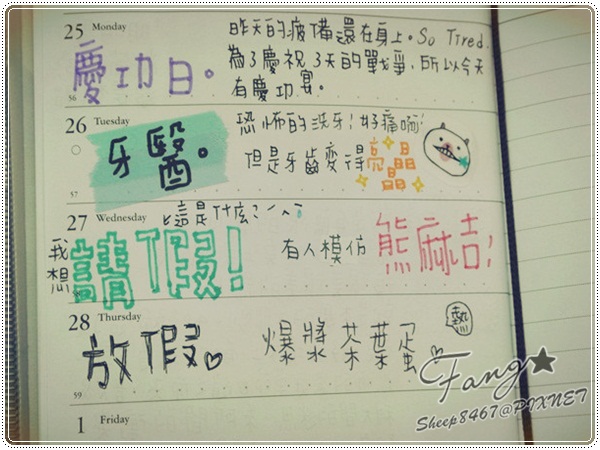 25 Monday
慶功日。
昨天的疲備還在身上。So Tired.
為了慶祝3天的戰爭,所以今天
有慶功宴。
56
26 Tuesday
牙醫。
恐怖的洗牙!好痛啊!
但是牙齒變得亮晶晶
57
27 Wednesday
這是什麼?
我想
請假!
有人模仿
熊麻吉!
28 Thursday
放假
爆漿茶葉蛋
熱
59
1 Friday
Fang
Sheep8467@PIXNET